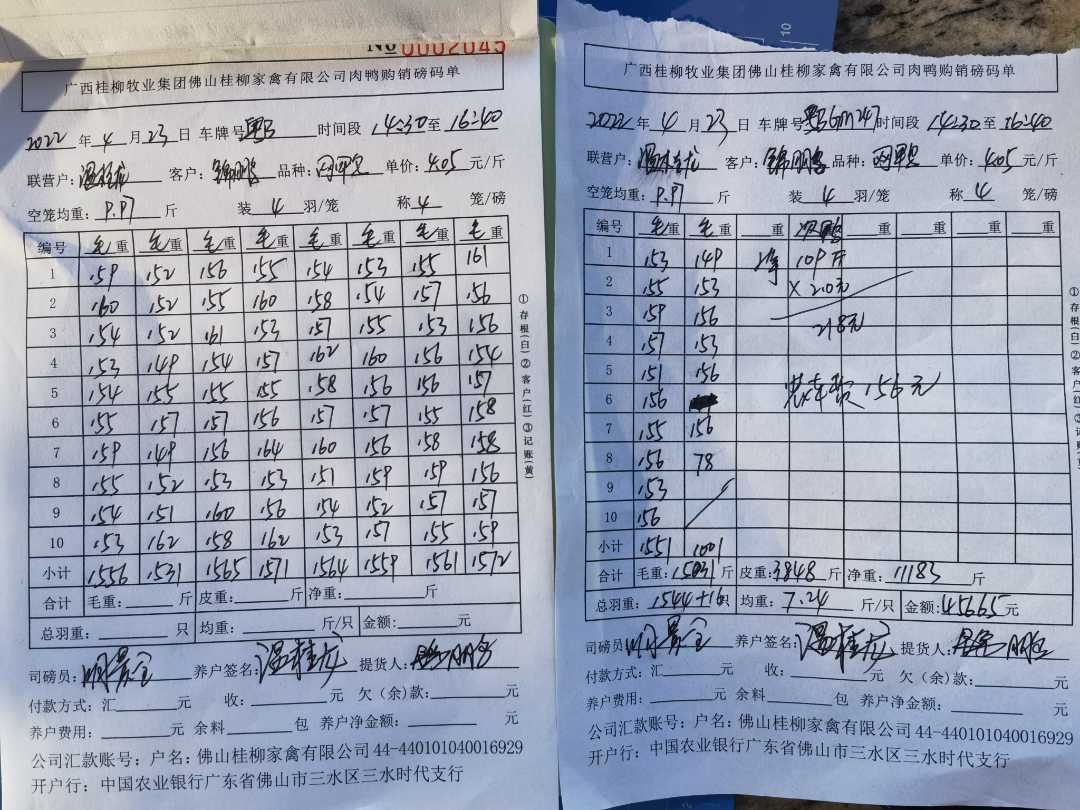 №0002045
广西桂柳牧业集团佛山桂柳家禽有限公司肉鸭购销磅码单
2022 年 4 月 23 日 车牌号 时间段 14:30 至 16:40
联营户: 温桂龙 客户: 锦鹏 品种: 单价: 4.05 元/斤
空笼均重: 9.97 斤 装 4 羽/笼 称 4 笼/磅
编号 毛重 毛重 毛重 毛重 毛重 毛重 毛重 毛重
1 159 152 156 155 154 153 155 161
2 160 152 155 160 158 154 157 156
3 154 152 161 153 157 155 153 156
4 153 149 154 157 162 160 156 154
5 154 155 155 155 158 156 156 157
6 155 157 157 156 157 157 155 158
7 159 149 156 164 160 156 158 158
8 155 152 153 153 151 159 159 156
9 154 151 160 156 154 152 157 157
10 153 162 158 162 153 157 155 159
小计 1556 1531 1565 1571 1564 1559 1561 1572
合计 毛重: 斤 皮重: 斤 净重: 斤
总羽重: 只 均重: 斤/只 金额: 元
司磅员: 养户签名: 温桂龙 提货人:
付款方式: 汇 收: 元 欠(余)款: 元
养户费用: 元 余料 包 养户净金额: 元
公司汇款账号: 户名: 佛山桂柳家禽有限公司 44-440101040016929
开户行: 中国农业银行广东省佛山市三水区三水时代支行
①存根(白)②客户(红)③记账(黄)
广西桂柳牧业集团佛山桂柳家禽有限公司肉鸭购销磅码单
2022 年 4 月 23 日 车牌号 时间段 14:30 至 16:40
联营户: 温桂龙 客户: 锦鹏 品种: 单价: 4.05 元/斤
空笼均重: 9.97 斤 装 4 羽/笼 称 4 笼/磅
编号 毛重 毛重 重 次鸭 重 重 重 重
1 153 149 净 109斤
2 155 153 × 2.0元
3 159 156 218元
4 157 153
5 151 156
6 156 装车费 156元
7 155 156
8 156 78
9 153
10 156
小计 1551 1001
合计 毛重: 15031 斤 皮重: 3848 斤 净重: 11183 斤
总羽重: 1544+16 只 均重: 7.24 斤/只 金额: 45665 元
司磅员: 养户签名: 温桂龙 提货人:
付款方式: 汇 收: 元 欠(余)款: 元
养户费用: 元 余料 包 养户净金额: 元
公司汇款账号: 户名: 佛山桂柳家禽有限公司 44-440101040016929
开户行: 中国农业银行广东省佛山市三水区三水时代支行
①存根(白)②客户(红)③记账